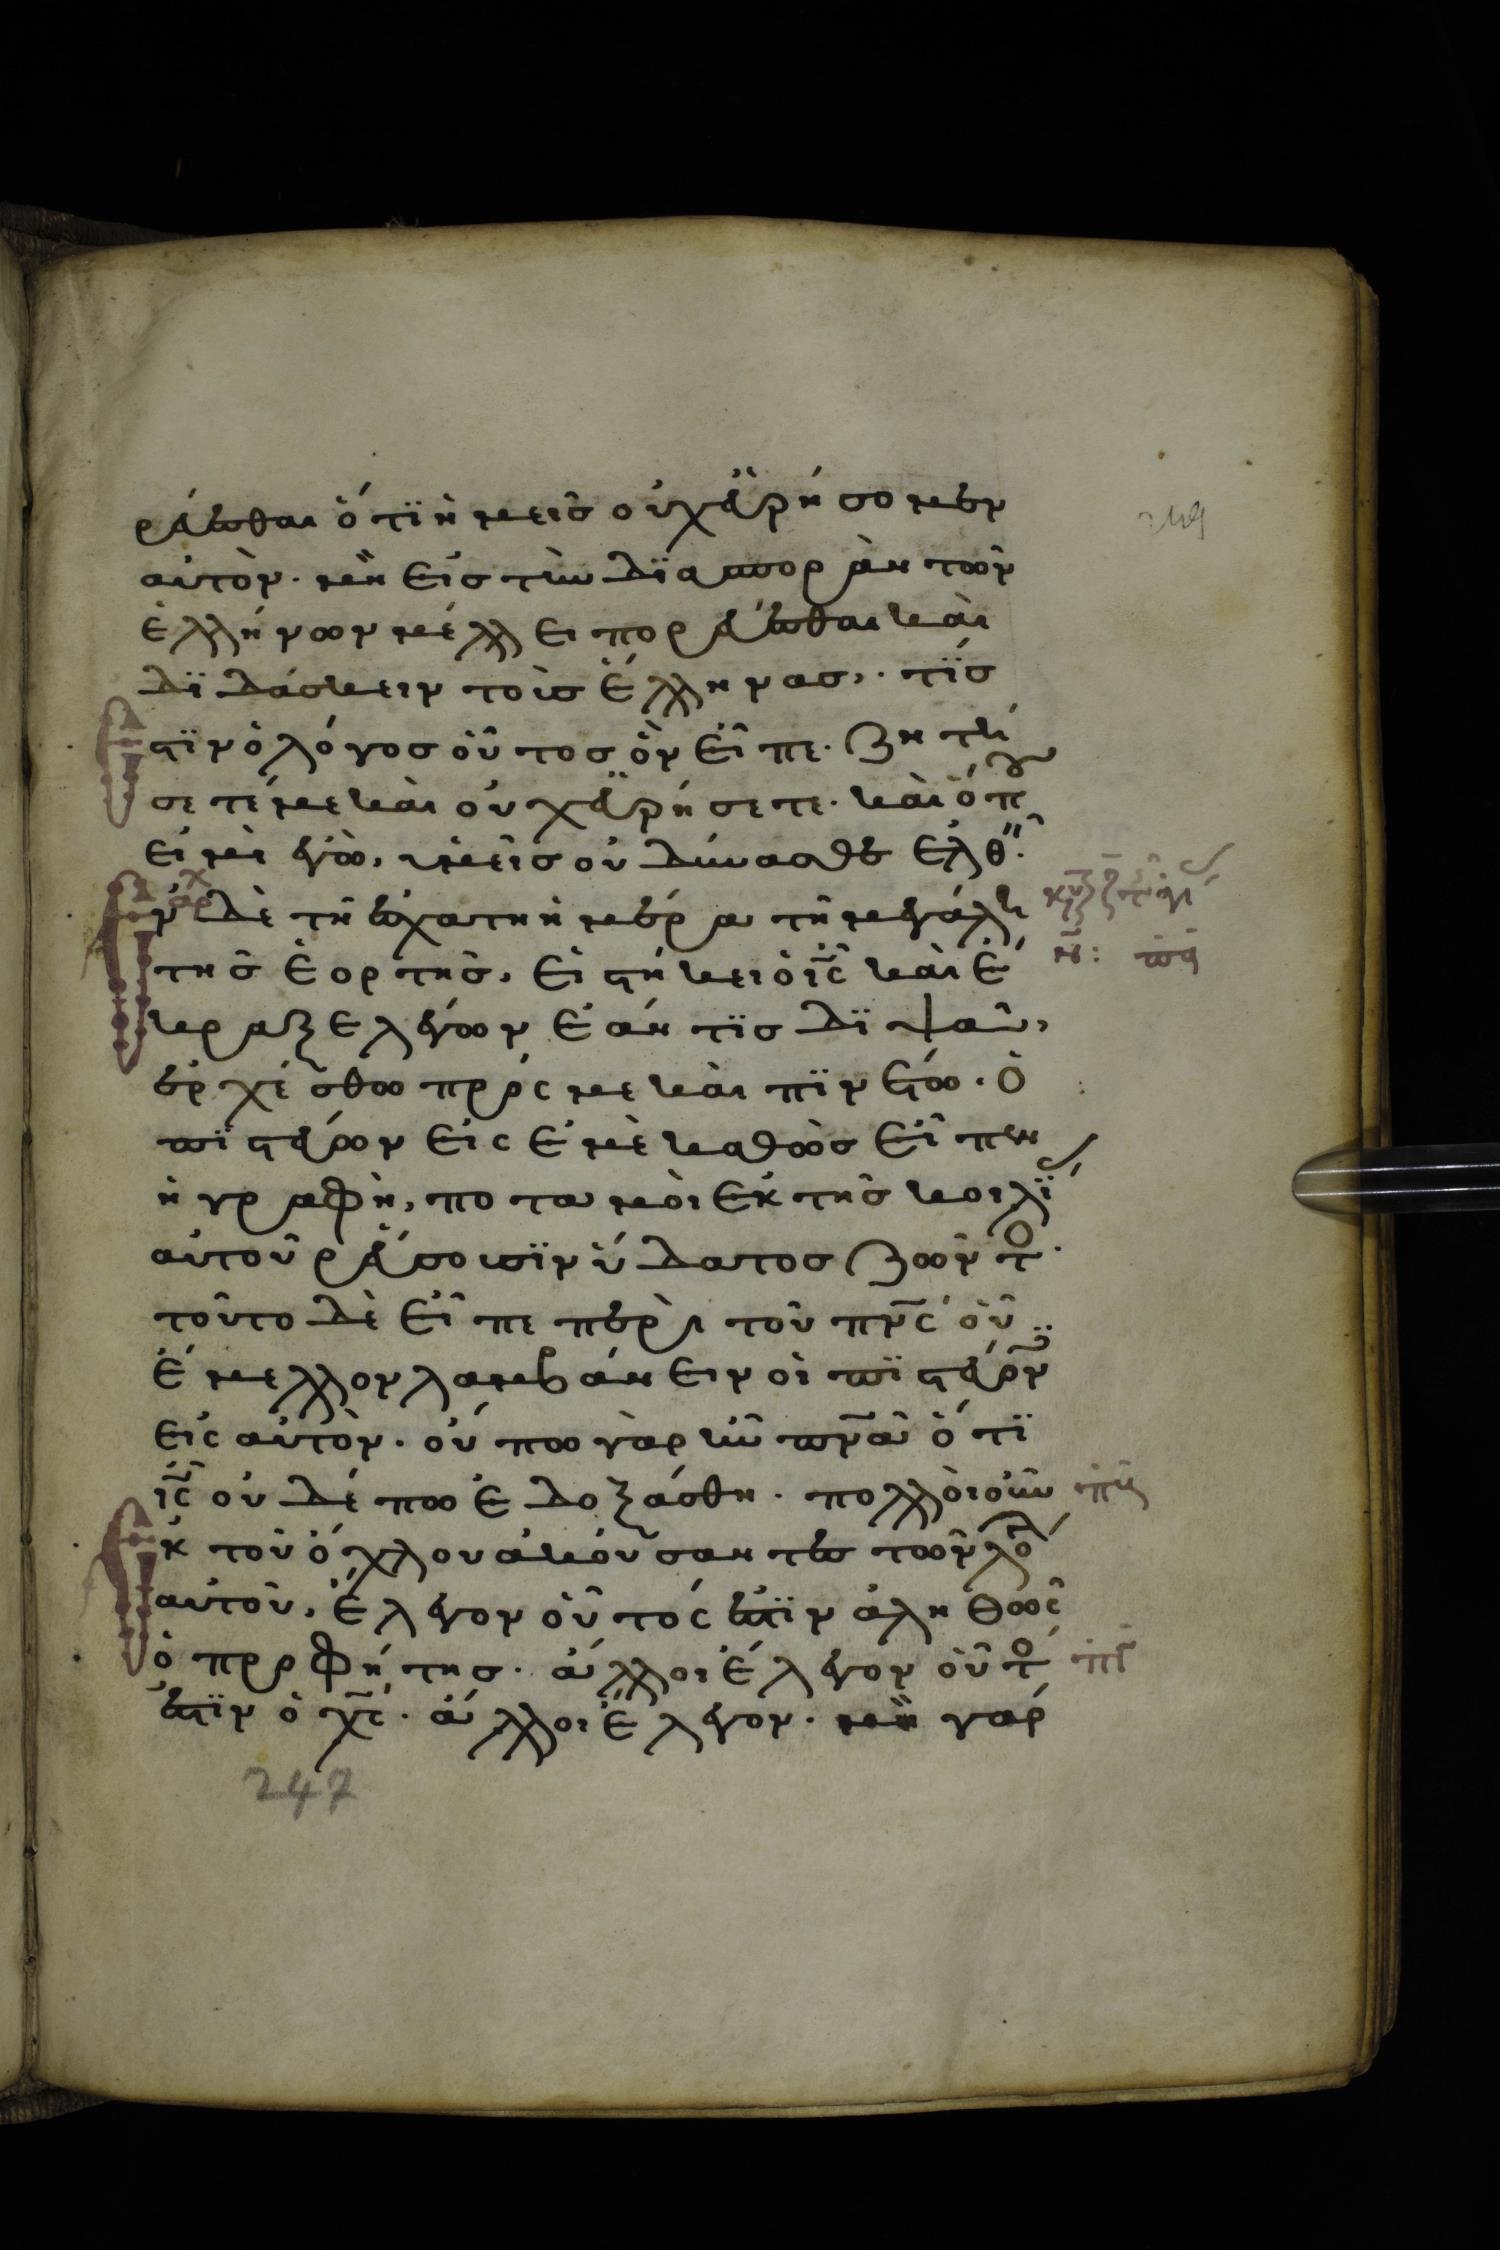 ρεύεσθαι ὅτϊ ἡμεῖσ οὐχ εὑρήσομεν
αὐτὸν· μὴ εἰσ τὴν δϊασπορὰν τῶν
ἑλλήνων μέλλει πορεύεσθαι καὶ
δϊδάσκειν τοὺσ ἕλληνασ,· τίσ
ἐστϊν ὁ λόγοσ οὗτοσ ὃν εἶπε· ζητή
σετέ με καὶ οὐχ εὑρήσετε· καὶ ὅπου
εἰμὶ ἐγὼ, ὑμεῖσ οὐ δύνασθε ἐλθεῖν·
ἐν δὲ τῆ ἐσχάτη ἡμέρα τῆ μεγάλη
τῆσ ἑορτῆσ, εἱστήκει ὁ ἰς καὶ ἔ
κραξε λέγων ἐάν τϊσ δϊψᾶ,
ἐρχέσθω πρός με καὶ πϊνέτω· ὁ
πϊστεύων εἰς ἐμὲ καθὼσ εἶπεν
ἡ γραφὴ, ποταμοὶ ἐκ τῆσ κοιλίασ
αὐτοῦ ῥεύσουσϊν ὕδατοσ ζῶντος·
τοῦτο δὲ εἶπε περὶ τοῦ πνς οὗ
ἔμελλον λαμβάνειν οἱ πϊστεύοντες
εἰς αὐτὸν· οὔπω γὰρ ἦν πνα ὅτϊ
ἰς οὐδέπω ἐδοξάσθη· πολλοὶ οὖν
ἐκ τοῦ ὄχλου ἀκούσαντεσ τῶν λόγων
αὐτοῦ, ἔλεγον οὗτός ἐστϊν ἀληθῶς
ὁ προφήτησ· ἄλλοι ἔλεγον οὗτος
ἐστϊν ὁ χς· ἄλλοι ἔλεγον· μὴ γὰρ
247